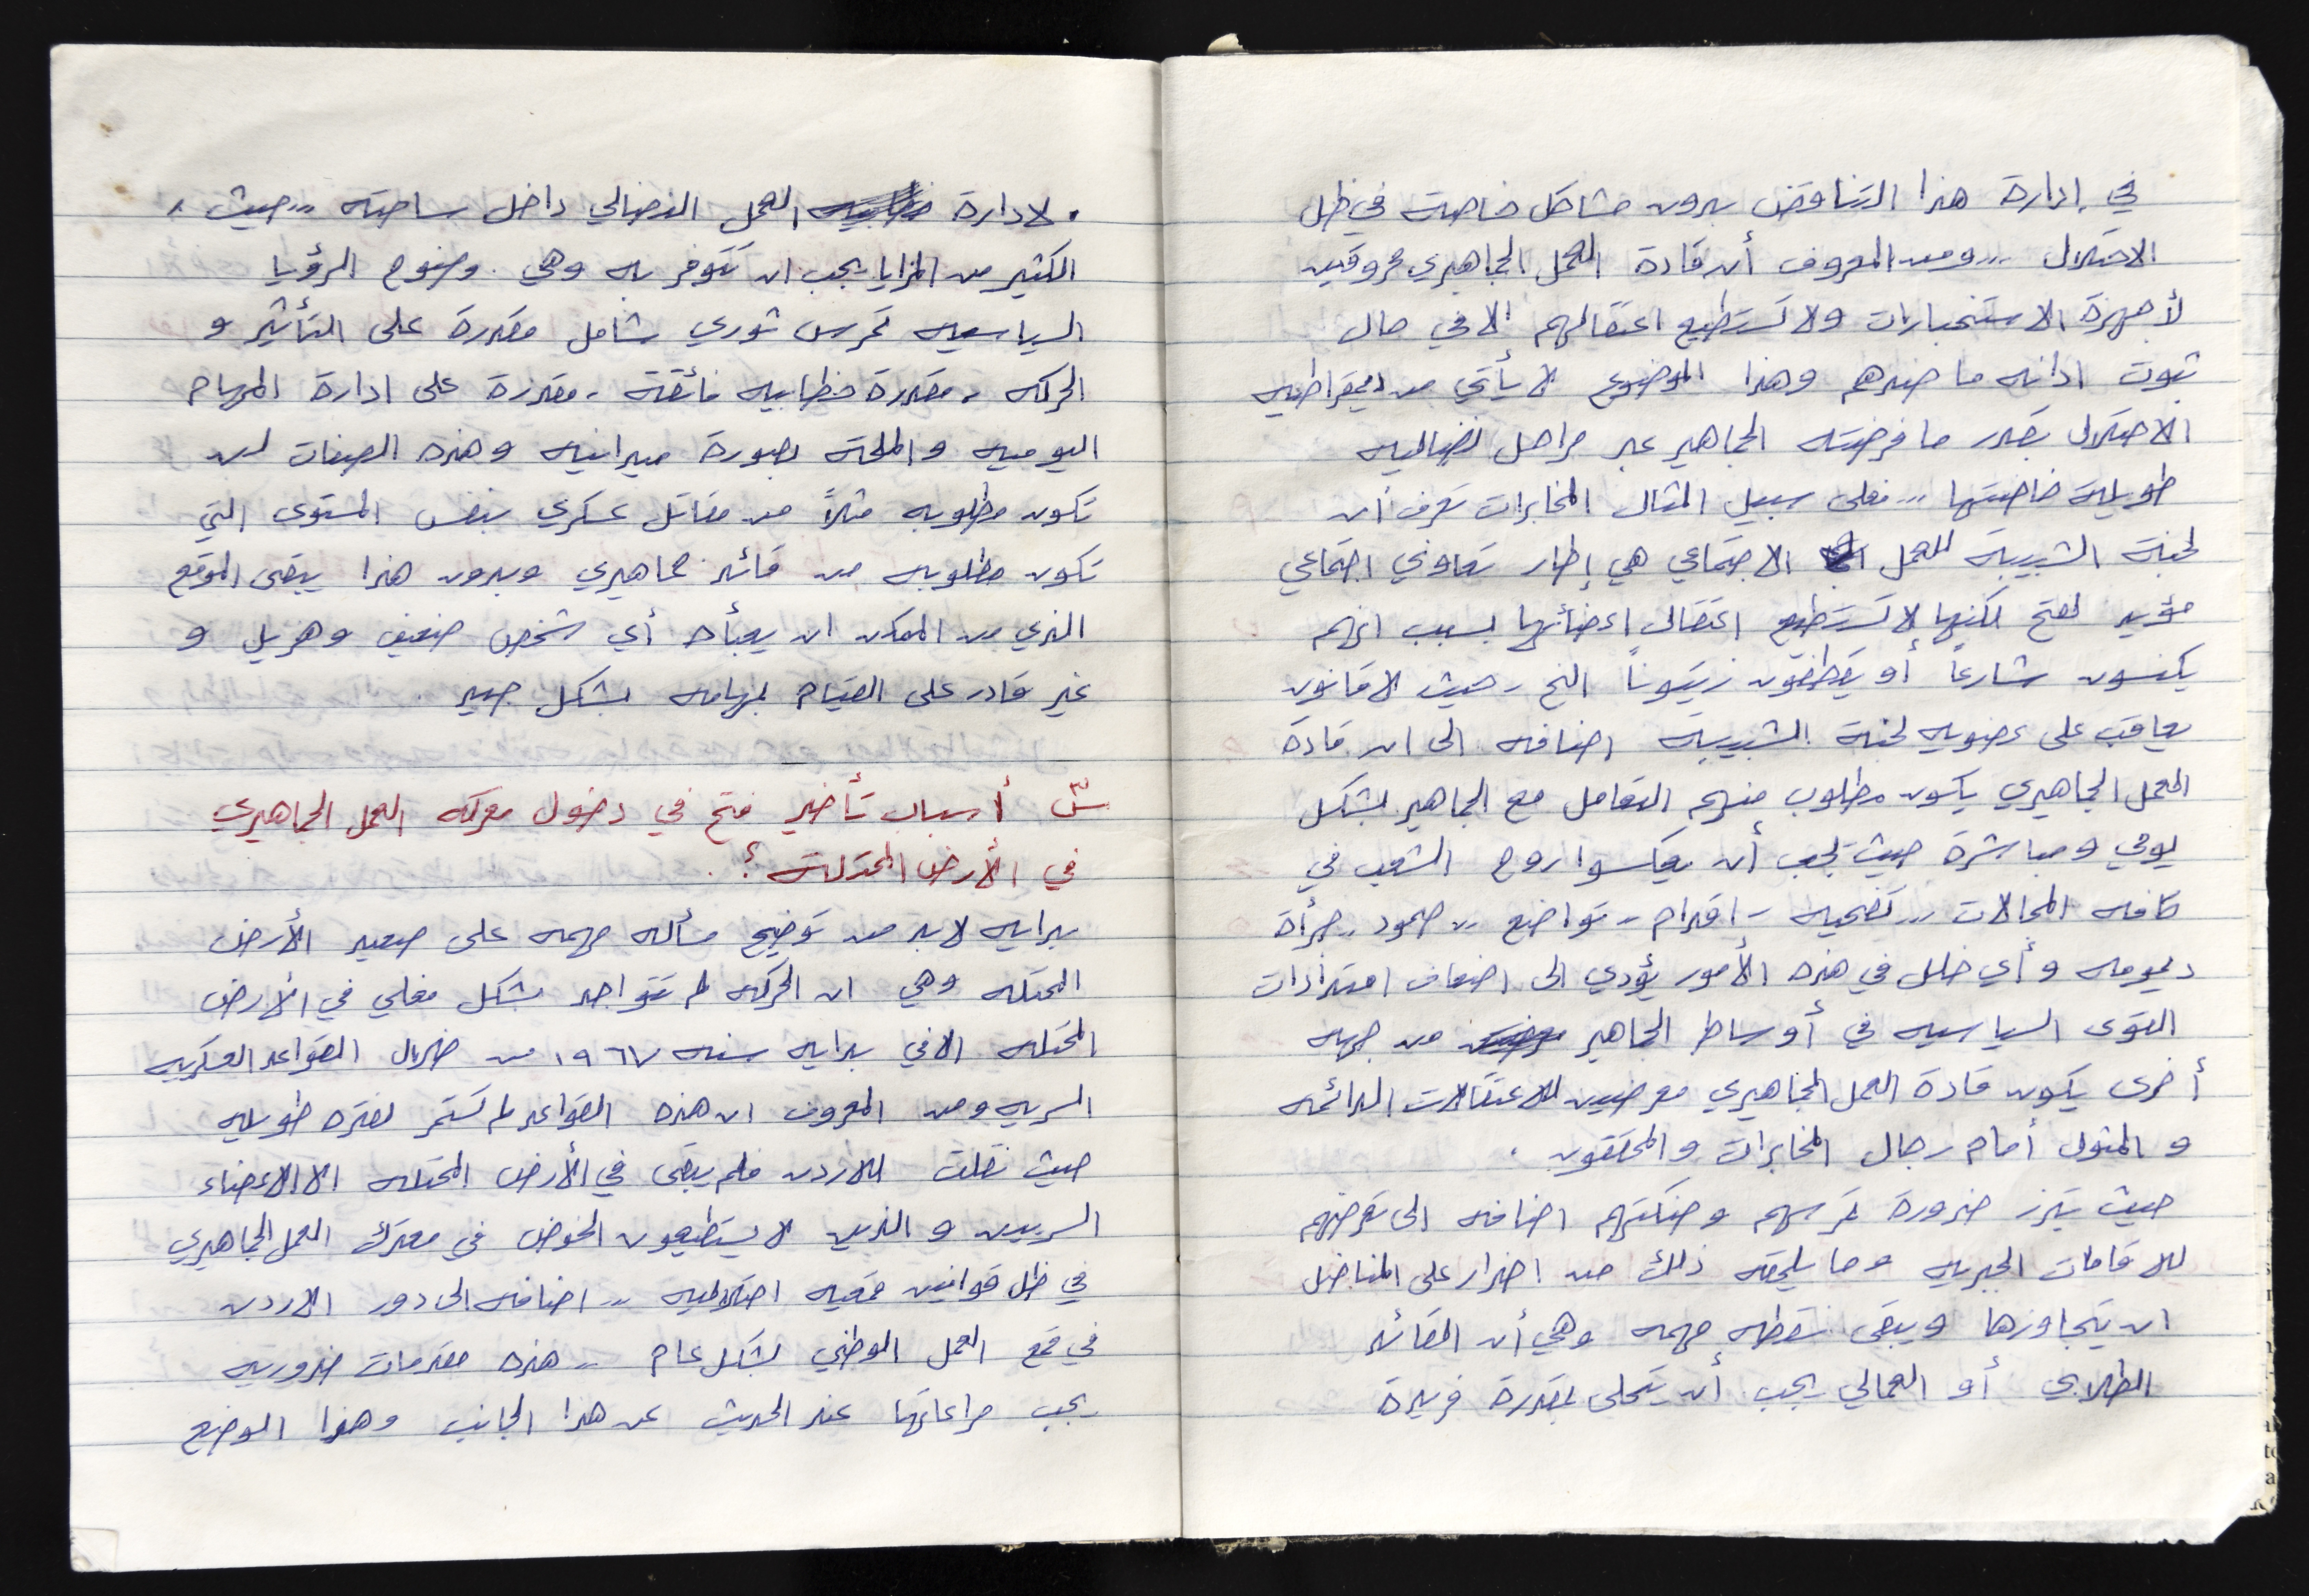 في إدارة هذا التناقض بدون مشاكل خاصة في ظل
الاحتلال ,, ومن المعروف أن قادة العمل الجماهيري معروفين
لأجهزة الاستخبارات ولا تستطيع اعتقالهم الا في حال
ثبوت ادانه ما ضدهم وهذا الموضوع لا يأتي من ديمقراطيه
الاحتلال بقدر ما فرضته الجماهير عبر مراحل نضاليه
طويلة خاضتها ,, فعلى سبيل المثال المخابرات تعرف أن
لجنة الشبيبة للعمل الاجتماعي هي إطار تعاوني اجتماعي
مؤيد لفتح لكنها لا تستطيع اعتقال اعضائها بسبب انهم
يكنسون شارعاً أو يقطفون زيتوناً الخ , حيث لا قانون
يعاقب على عضويه لجنة الشبيبة اضافه الى ان قادة
العمل الجماهيري يكون مطلوب منهم التعامل مع الجماهير بشكل
يومي ومباشرة حيث يجب أن يعكسوا روح الشعب في
كافه المجالات ,, تضحيه , اقدام ,, تواضع ,, صمود ,, جرأة
ديمومه وأي خلل في هذه الأمور يؤدي الى اضعاف امتدادات
القوى السياسيه في أوساط الجماهير من جهه
أخرى يكون قادة العمل الجماهيري معرضين للاعتقالات الدائمه
و المثول أمام رجال المخابرات والمحققون .
حيث تبرز ضرورة تمرسهم وحنكتهم اضافه الى تعرضهم
للاقامات الجبريه وما يلحقه ذلك من اضرار على المناضل
ان يتجاوزها ويبقى نقطه مهمه وهي أن القائد
الطلابي أو العمالي يجب أن يتحلى بقدرة فريدة
. لادارة العمل النضالي داخل ساحته ,, حيث ,
الكثير من المزايا يجب ان تتوفر به وهي . وضوح الرؤيا
السياسيه تمرس ثوري شامل مقدرة على التأثير و
الحركه , مقدرة خطابيه فائقة , مقدرة على ادارة المهام
اليوميه والملحة بصورة ميدانيه وهذه الصفات لن
تكون مطلوبه مثلاً من مقاتل عسكري بنفس المستوى التي
تكون مطلوبه من قائد جماهيري وبدون هذا يبقى الموقع
الذي من الممكن ان يعبأه أي شخص ضعيف وهزيل و
غير قادر على القيام بمهامه بشكل جيد .
س أسباب تأخير فتح في دخول معركه العمل الجماهيري
في الأرض المحتلة ؟ .
بدايه لابد من توضيح مسأله مهمه على صعيد الأرض
المحتله وهي ان الحركه لم تتواجد بشكل فعلي في الأرض
المحتله الا في بدايه سنه ١٩٦٧ من خلال القواعد العسكريه
السريه ومن المعروف ان هذه القواعد لم تستمر لفتره طويله
حيث نقلت للاردن فلم يبقى في الأرض المحتله الا الاعضاء
السريين والذين لا يستطيعون الخوض في معترك العمل الجماهيري
في ظل قوانين قمعيه احتلاليه ,, اضافه الى دور الاردن
في قمع العمل الوطني بشكل عام ,, هذه مقدمات ضروريه
يجب مراعاتها عند الحديث عن هذا الجانب وهذا الوضع